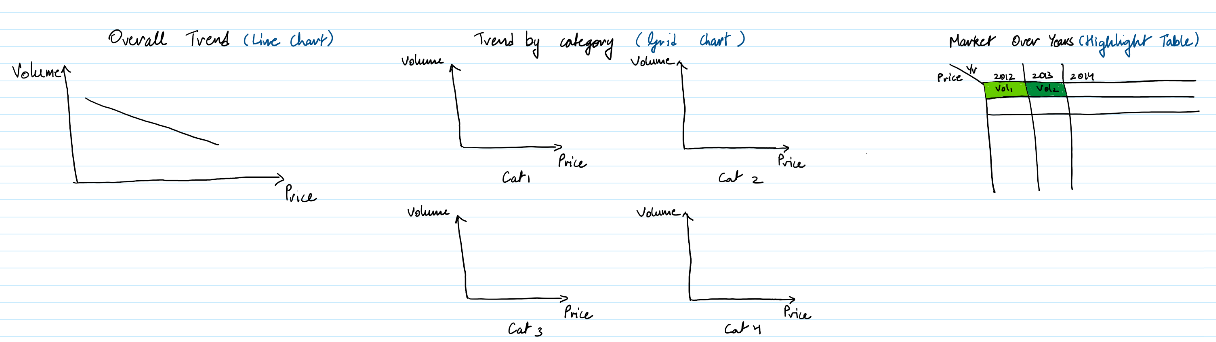 Overall Trend (Line Chart)
Volume
Price
Trend by category (Grid Chart)
Volume
Price
Cat1
Volume
Price
Cat 2
Volume
Price
Cat 3
Volume
Price
Cat 4
Market Over Years (Highlight Table)
Yr
Price
2012 2013 2014
Vol1 Vol2